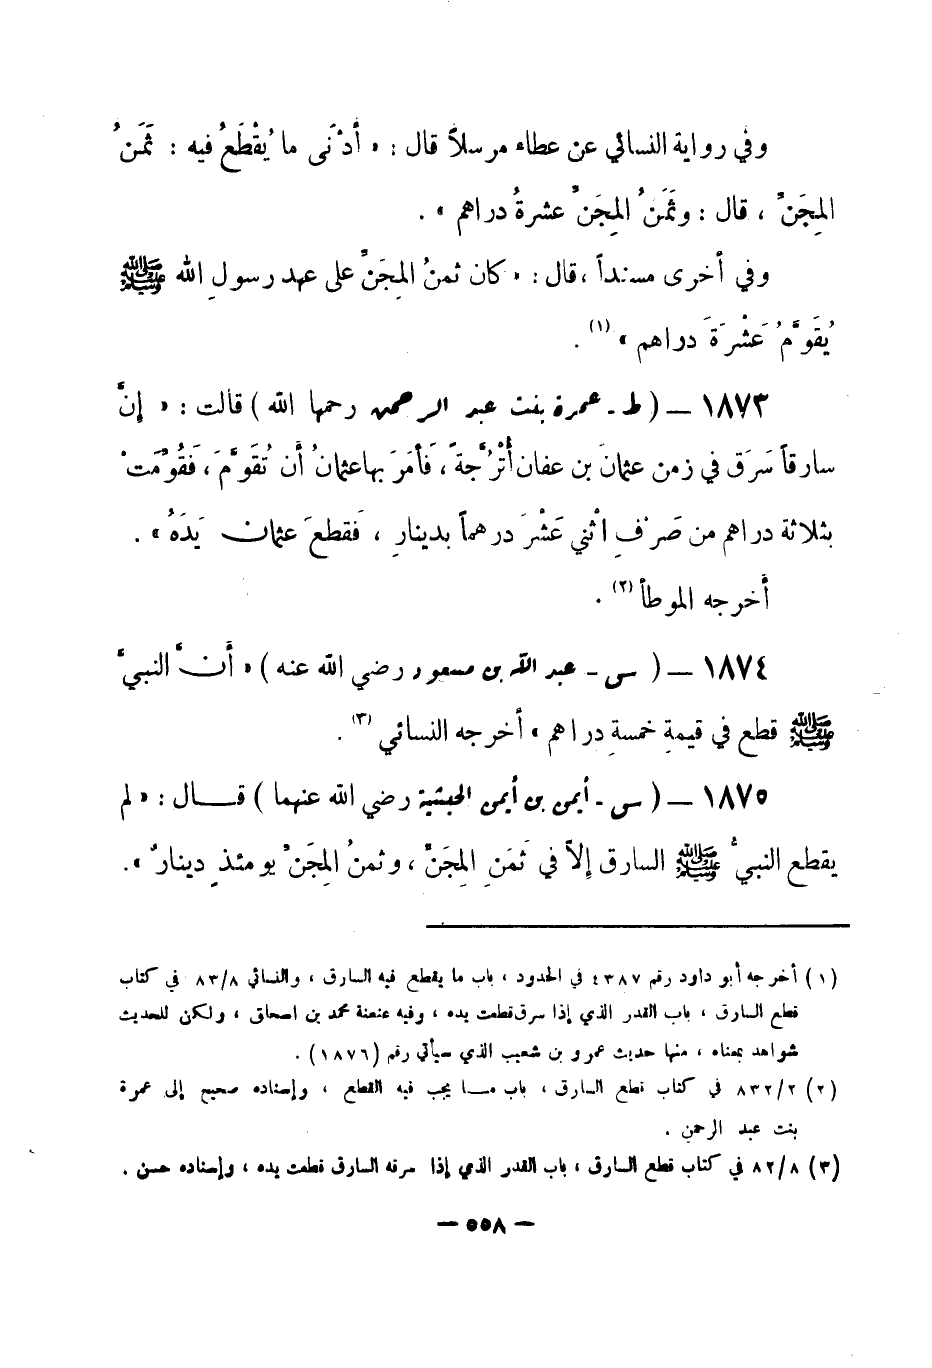 وفي رواية النسائي عن عطاء مرسلاً قال : « أدْنَى ما يُقْطَعُ فيه : ثَمَنُ
المِجَنِّ ، قال : وثَمَنُ المِجَنِّ عشرةُ دراهم » .
وفي أخرى مسنداً ، قال : « كان ثمنُ المِجَنِّ على عهد رسولِ الله ﷺ
يُقَوَّمُ عَشْرَةَ دراهم » (١) .
١٨٧٣ – ( ط - عمرة بنت عبد الرحمن رحمها الله ) قالت : « إنَّ
سارقاً سَرَق في زمن عثمانَ بن عفان أُتْرُجَّةً ، فأمَرَ بها عثمانُ أن تُقَوَّمَ ، فَقُوِّمَتْ
بثلاثة دراهم من صَرْفِ اثْني عَشْرَ درهماً بدينارٍ ، فَقطعَ عثمان يَدَهُ » .
أخرجه الموطأ (٢) .
١٨٧٤ – ( س - عبد الله بن مسعود رضي الله عنه ) « أَنَّ النبيَّ
ﷺ قطع في قيمةِ خمسةِ دراهم » أخرجه النسائي (٣) .
١٨٧٥ – ( س - أيمن بن أيمن الحبشية رضي الله عنهما ) قال : « لم
يقطع النبيُّ ﷺ السارق إلاّ في ثَمَنِ المِجَنِّ ، وثمنُ المِجَنِّ يومئذٍ دينارٌ » .
(١) أخرجه أبو داود رقم ٤٣٨٧ في الحدود ، باب ما يقطع فيه السارق ، والنسائي ٨٣/٨ في كتاب
قطع السارق ، باب القدر الذي إذا سرق قطعت يده ، وفيه عنعنة محمد بن اسحاق ، ولكن للحديث
شواهد بمعناه ، منها حديث عمرو بن شعيب الذي سيأتي رقم (١٨٧٦) .
(٢) ٨٣٢/٢ في كتاب قطع السارق ، باب ما يجب فيه القطع ، وإسناده صحيح إلى عمرة
بنت عبد الرحمن .
(٣) ٨٢/٨ في كتاب قطع السارق ، باب القدر الذي إذا سرقه السارق قطعت يده ، وإسناده حسن .
– ٥٥٨ –